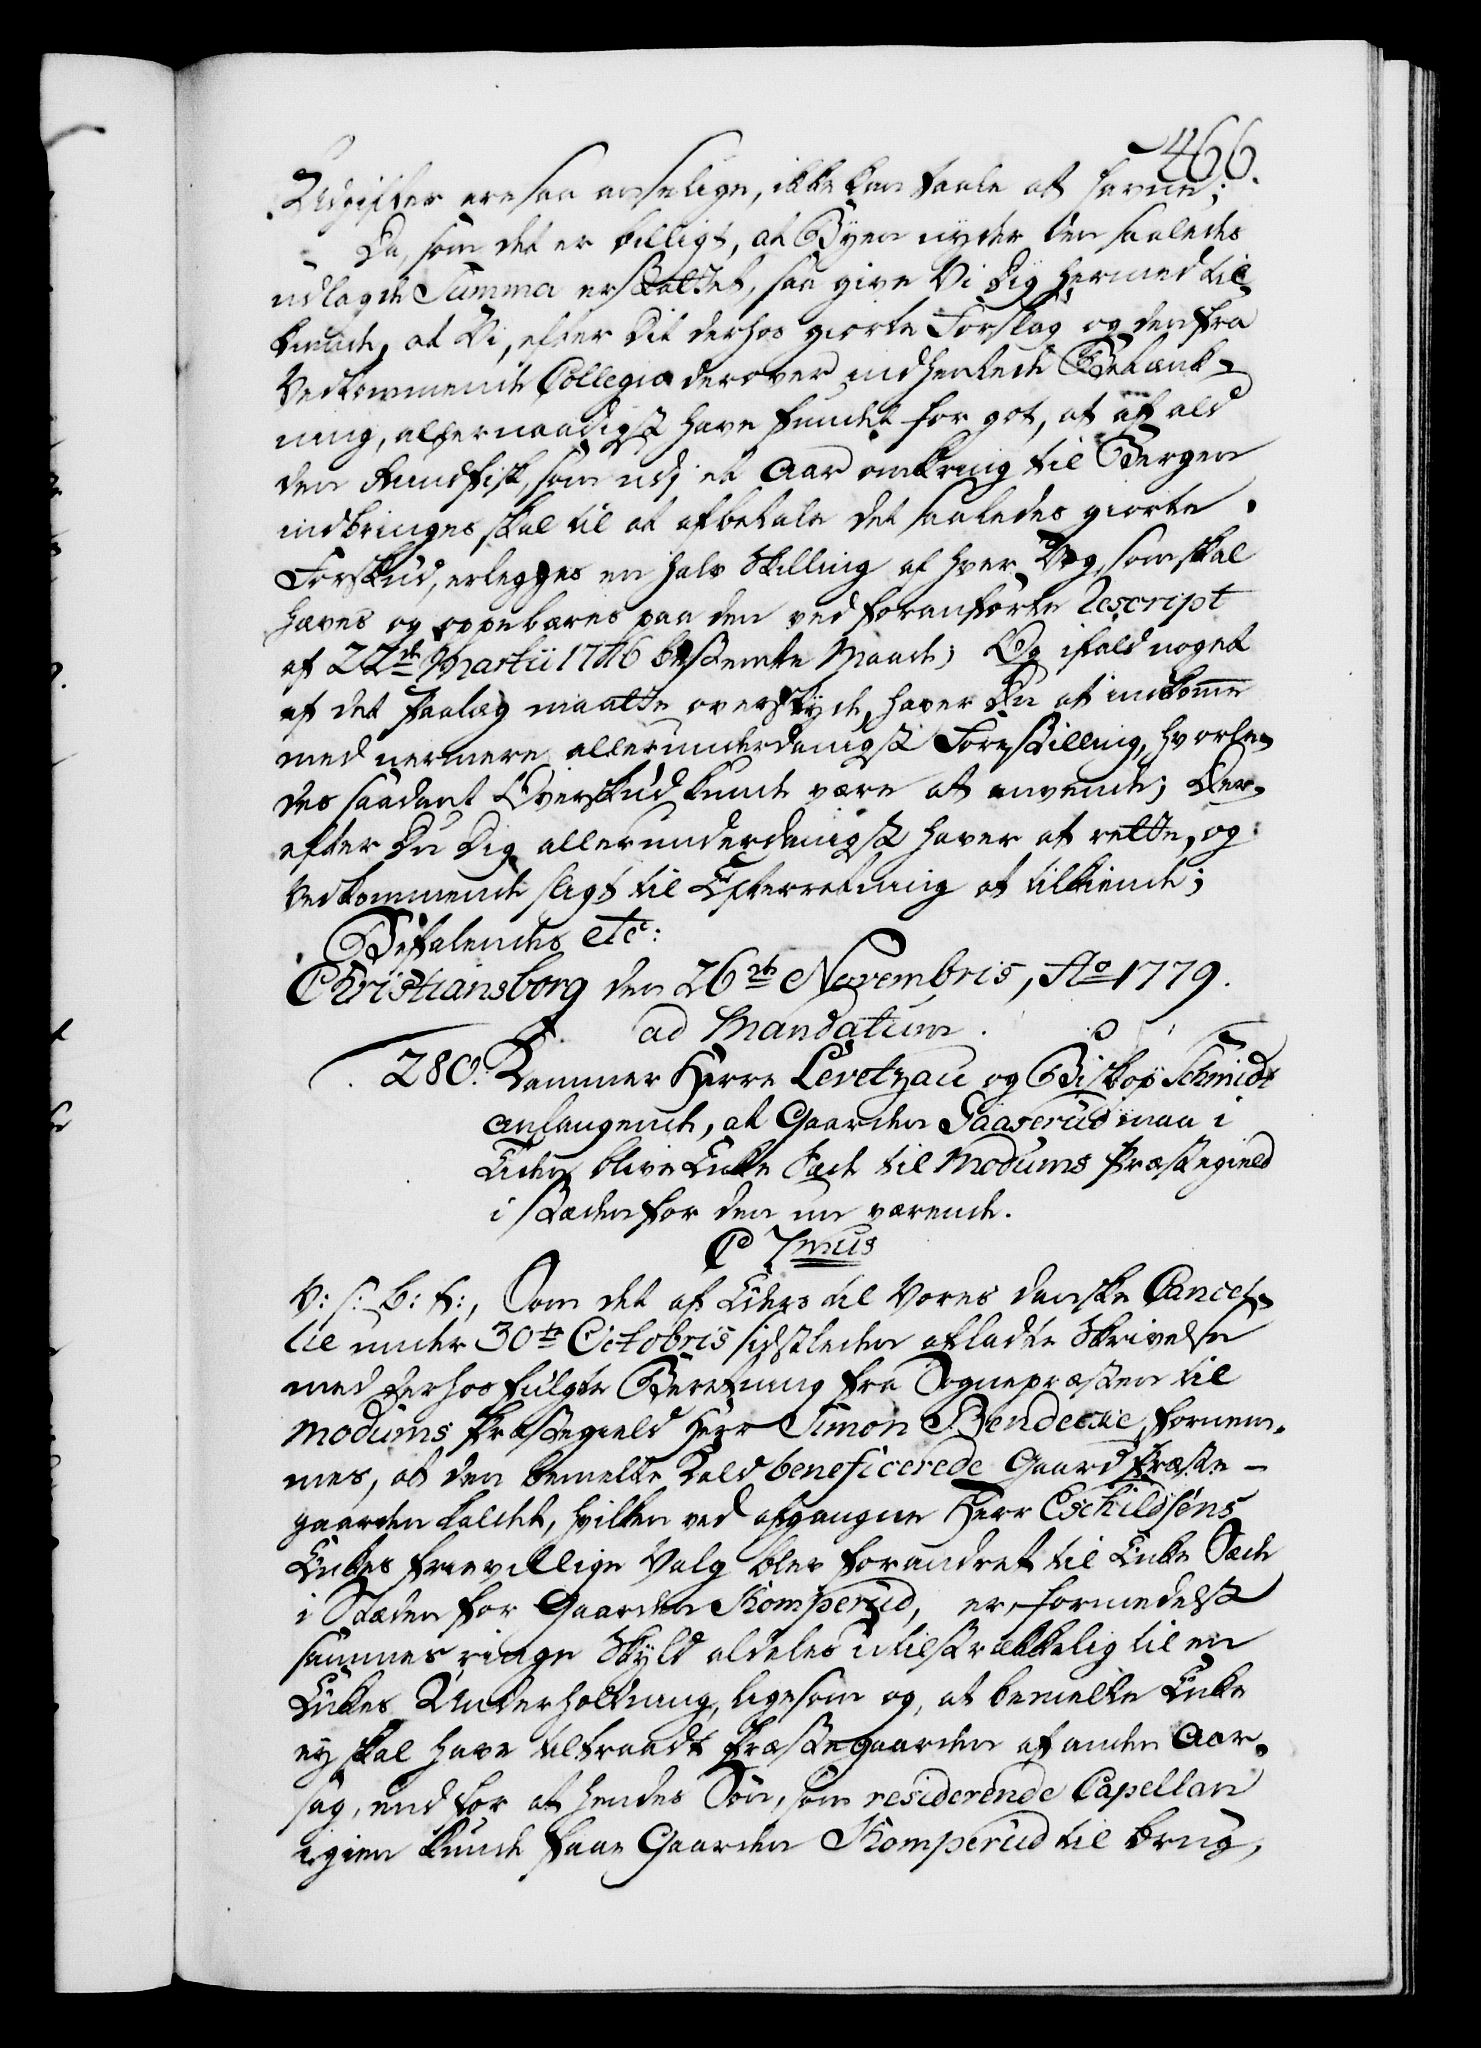 466.
Udgifter ere saa anselige, ikke kan taale at savne;
Da, som det er billigt, at Byen nyder den saaledes
udlagde Summa erstattet, saa give Vi Dig hermed til¬
kiende, at Vi, efter Dit derhos giorte Forslag og den fra
Vedkommende Collegia derover indhentede Betænk¬
ning, allernaadigst have fundet for got, at af ald
den Rundfisk, som udj et Aar omkring til Bergen
indbringes skal til at afbetale det saaledes giorte
Forskud, erlegges en halv Skilling af hver Vog, som skal
hæves og oppebæres paa den ved foranførte Rescript
af 22de Martii 1746 bestemte Maade; Og ifald noget
af det Paalæg maatte overskyde, haver Du at indkomme
med nermere allerunderdanigst Forestilling, hvorle¬
des saadant Overskud kunde være at anvende; Der¬
efter Du Dig allerunderdanigst haver at rette, og
Vedkommende sligt til Efterretning at tilkiende;
Befalendes etc:
Christiansborg den 26de Novembris, Ao 1779.
ad Mandatum.
280. Kammer Herre Levetzau og Biskop Schmidt
anlangende, at Gaarden Saaserud maa i
Tiden blive Enke Sæde til Modums Præstegield
i Stæden for den nu værende.
C 7mus
V: s: b: t:, Som det af Eders til Vores danske Cancel¬
lie under 30te Octobris sidstleden afladte Skrivelse
med derhos fulgte Beretning fra Sognepræsten til
Modums Præstegield Herr Simon Bendecke, fornem¬
mes, at den bemelte Kald beneficerede Gaard Præste¬
gaarden kaldet, hvilken ved afgangne Herr Eschildsens
Enkes frievillige Valg blev forandret til Enke Sæde
i Stæden for Gaarden Komperud, er, formedelst
sammes ringe Skyld aldeles utilstrækkelig til en
Enkes Underholdning, ligesom og, at bemelte Enke
ey skal have tiltraadt Præstegaarden af anden Aar¬
sag, end for at hendes Søn, som residerende Capellan
igien kunde faae Gaarden Komperud til brug,